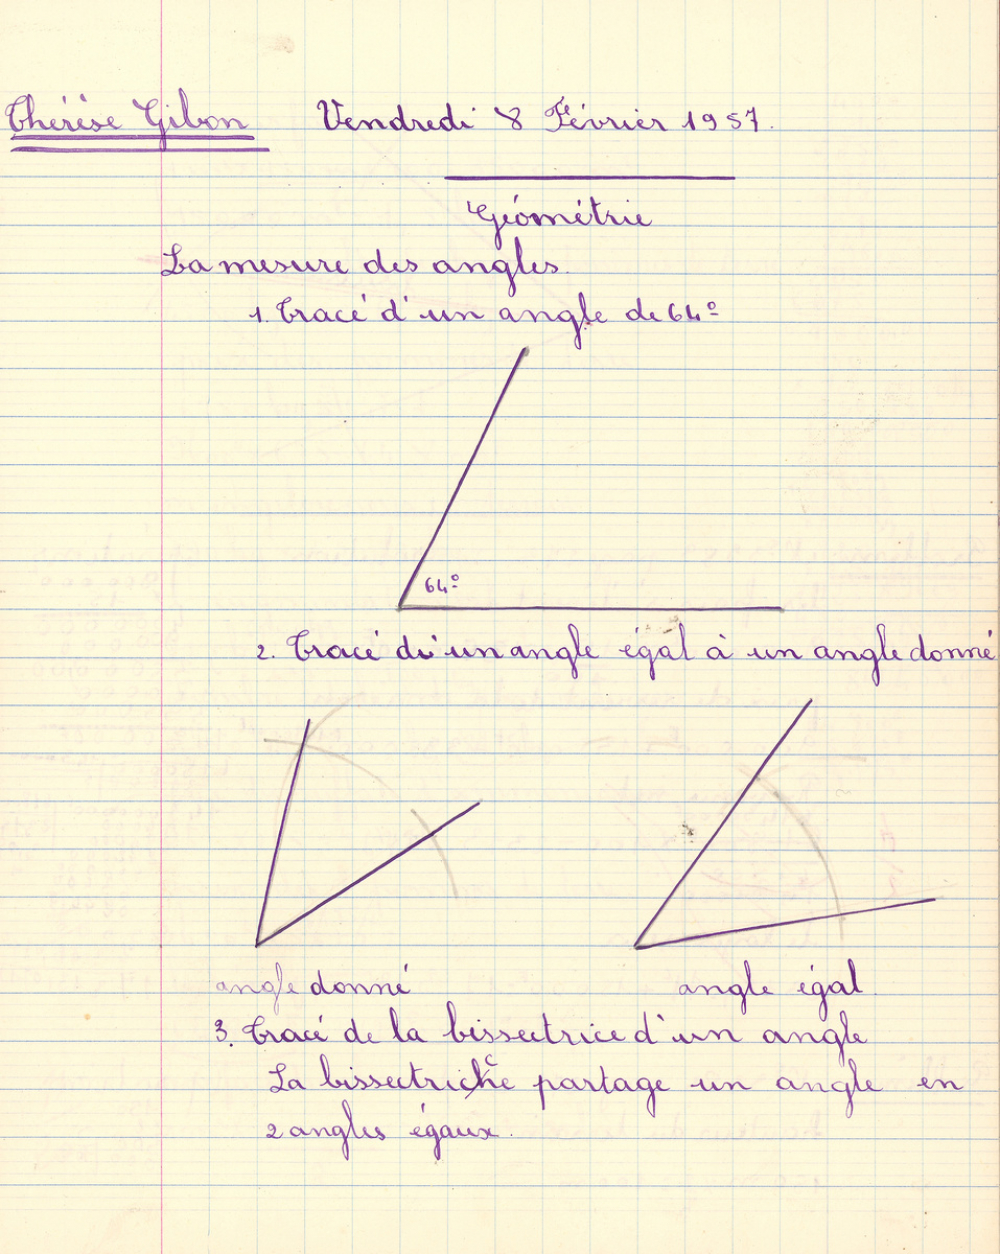 Thérèse Gibon Vendredi 8 Février 1957.
Géométrie
La mesure des angles.
1. Tracé d'un angle de 64°
64°
2. Tracé d'un angle égal à un angle donné
angle donné angle égal.
3. Tracé de la bissectrice d'un angle
La bissectrice partage un angle en
2 angles égaux.